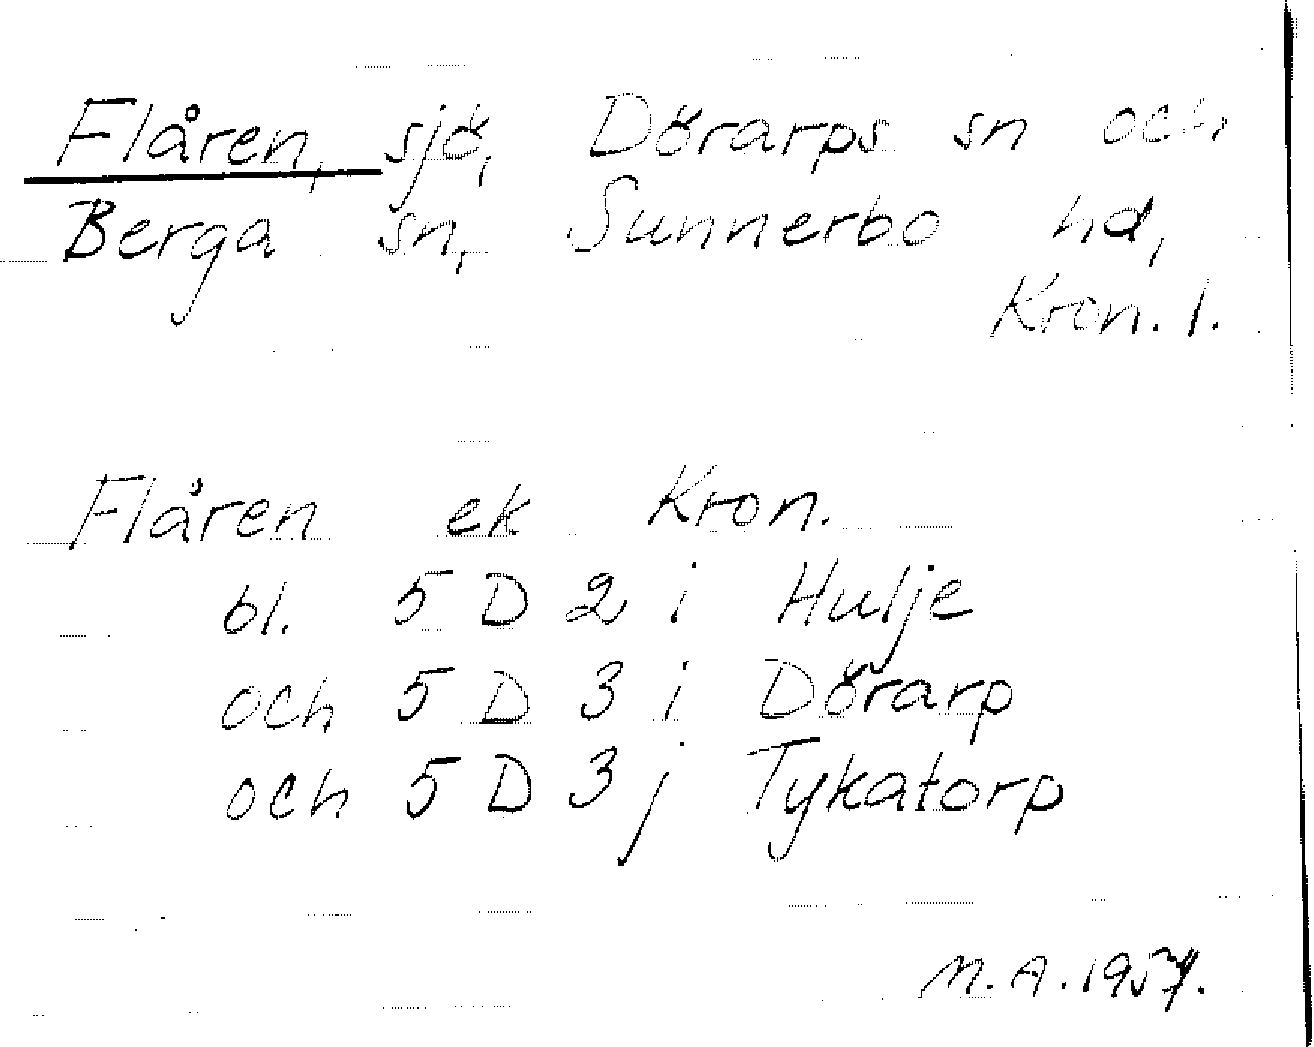 Flåren, sjö, Dörarps sn och
Berga sn, Sunnerbo hd,
Kron. l.
Flåren ek Kron.
bl. 5 D 2 i Hulje
och 5 D 3 i Dörarp
och 5 D 3 j Tykatorp
M. A. 1957.